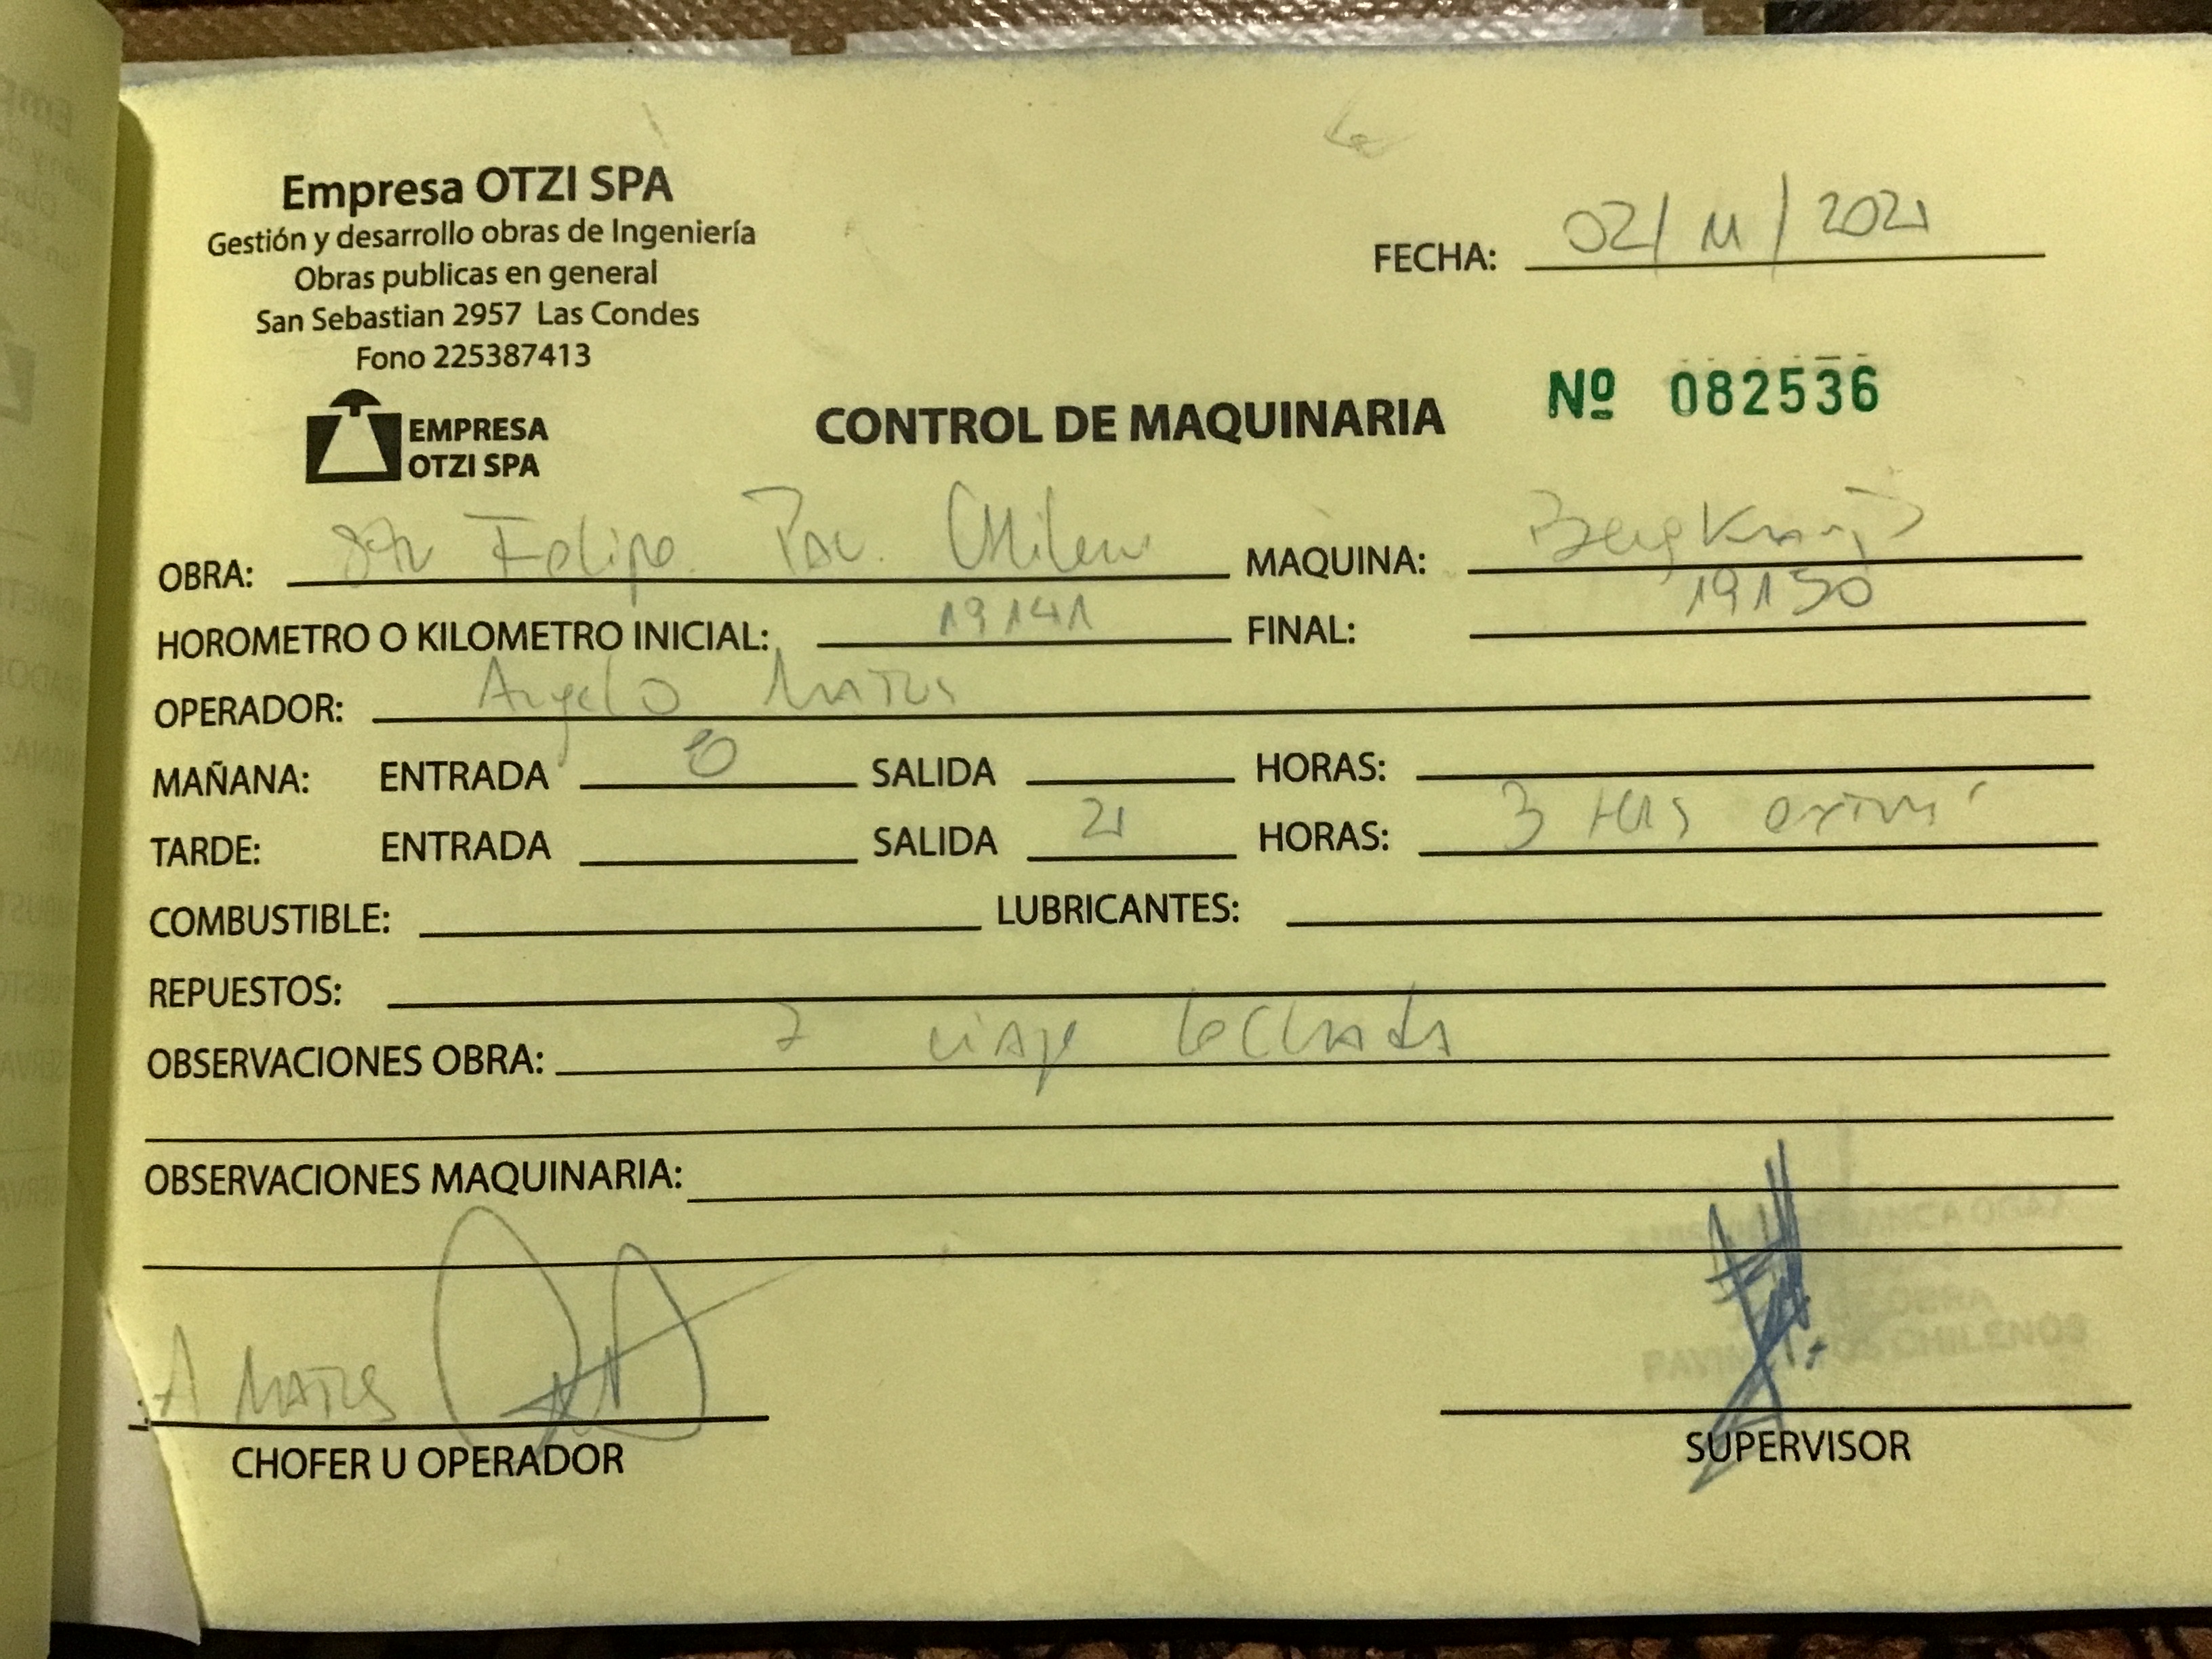 Empresa OTZI SPA
Gestión y desarrollo obras de Ingeniería
Obras publicas en general
San Sebastian 2957 Las Condes
Fono 225387413
FECHA: 02/11/2021
EMPRESA
OTZI SPA
CONTROL DE MAQUINARIA Nº 082536
OBRA: San Felipe Pav. Chilenos MAQUINA:
HOROMETRO O KILOMETRO INICIAL: 19141 FINAL: 19150
OPERADOR: Angelo Matus
MAÑANA: ENTRADA 8 SALIDA HORAS:
TARDE: ENTRADA SALIDA 21 HORAS: 3 Hrs
COMBUSTIBLE: LUBRICANTES:
REPUESTOS:
OBSERVACIONES OBRA: 2 viaje
OBSERVACIONES MAQUINARIA:
A Matus
CHOFER U OPERADOR SUPERVISOR